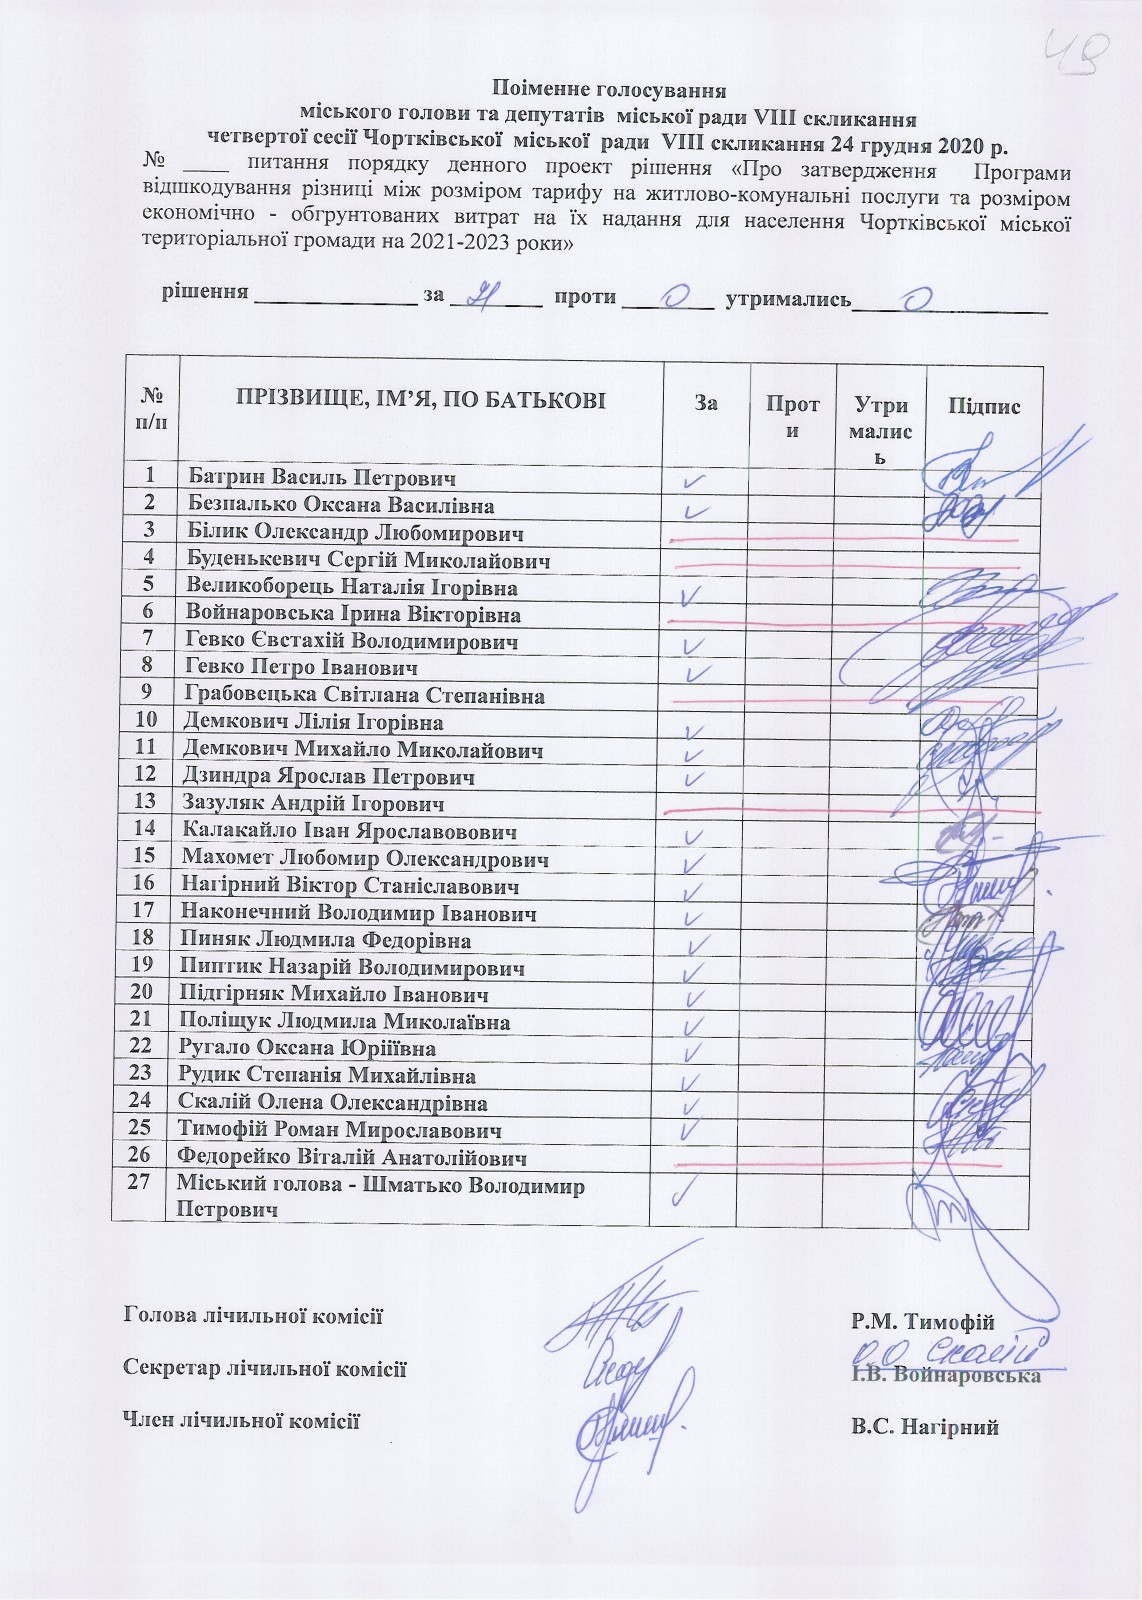 49
Поіменне голосування
міського голови та депутатів міської ради VIII скликання
четвертої сесії Чортківської міської ради VIII скликання 24 грудня 2020 р.
№ ____ питання порядку денного проект рішення «Про затвердження Програми
відшкодування різниці між розміром тарифу на житлово-комунальні послуги та розміром
економічно - обгрунтованих витрат на їх надання для населення Чортківської міської
територіальної громади на 2021-2023 роки»
рішення ______________ за 21 проти 0 утримались 0
№ п/п ПРІЗВИЩЕ, ІМ’Я, ПО БАТЬКОВІ За Проти Утрималис ь Підпис
1 Батрин Василь Петрович ✓
2 Безпалько Оксана Василівна ✓
3 Білик Олександр Любомирович
4 Буденькевич Сергій Миколайович
5 Великоборець Наталія Ігорівна ✓
6 Войнаровська Ірина Вікторівна
7 Гевко Євстахій Володимирович ✓
8 Гевко Петро Іванович ✓
9 Грабовецька Світлана Степанівна
10 Демкович Лілія Ігорівна ✓
11 Демкович Михайло Миколайович ✓
12 Дзиндра Ярослав Петрович ✓
13 Зазуляк Андрій Ігорович
14 Калакайло Іван Ярославовович ✓
15 Махомет Любомир Олександрович ✓
16 Нагірний Віктор Станіславович ✓
17 Наконечний Володимир Іванович ✓
18 Пиняк Людмила Федорівна ✓
19 Пиптик Назарій Володимирович ✓
20 Підгірняк Михайло Іванович ✓
21 Поліщук Людмила Миколаївна ✓
22 Ругало Оксана Юріїївна ✓
23 Рудик Степанія Михайлівна ✓
24 Скалій Олена Олександрівна ✓
25 Тимофій Роман Мирославович ✓
26 Федорейко Віталій Анатолійович
27 Міський голова - Шматько Володимир ✓
Петрович
Голова лічильної комісії Р.М. Тимофій
О.О Скалій
Секретар лічильної комісії І.В. Войнаровська
Член лічильної комісії В.С. Нагірний